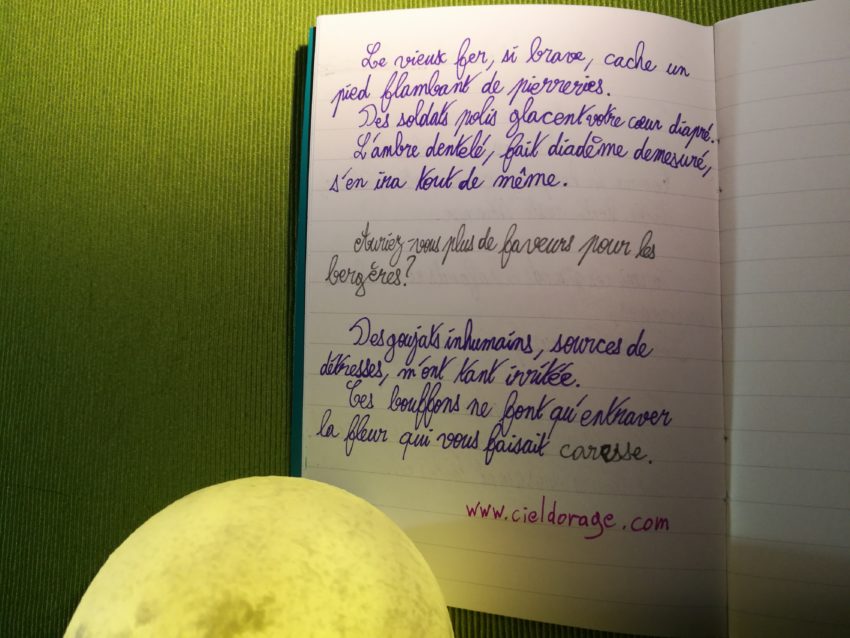 Le vieux fer, si brave, cache un
pied flambant de pierreries.
Des soldats polis glacent votre cœur diapré.
L'ambre dentelé, fait diadème demesuré,
s'en ira tout de même.
Auriez-vous plus de faveurs pour les
bergères?
Des goujats inhumains, sources de
détresses, m'ont tant irritée.
Ces bouffons ne font qu'entraver
la fleur qui vous faisait caresse.
www.cieldorage.com